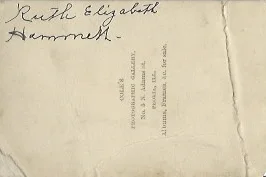 Ruth Elizabeth
Hammett.
COLE'S
PHOTOGRAPHIC GALLERY,
No. 3 N. Adams st.
PEORIA, ILL.
Albums, Frames, &c. for sale.